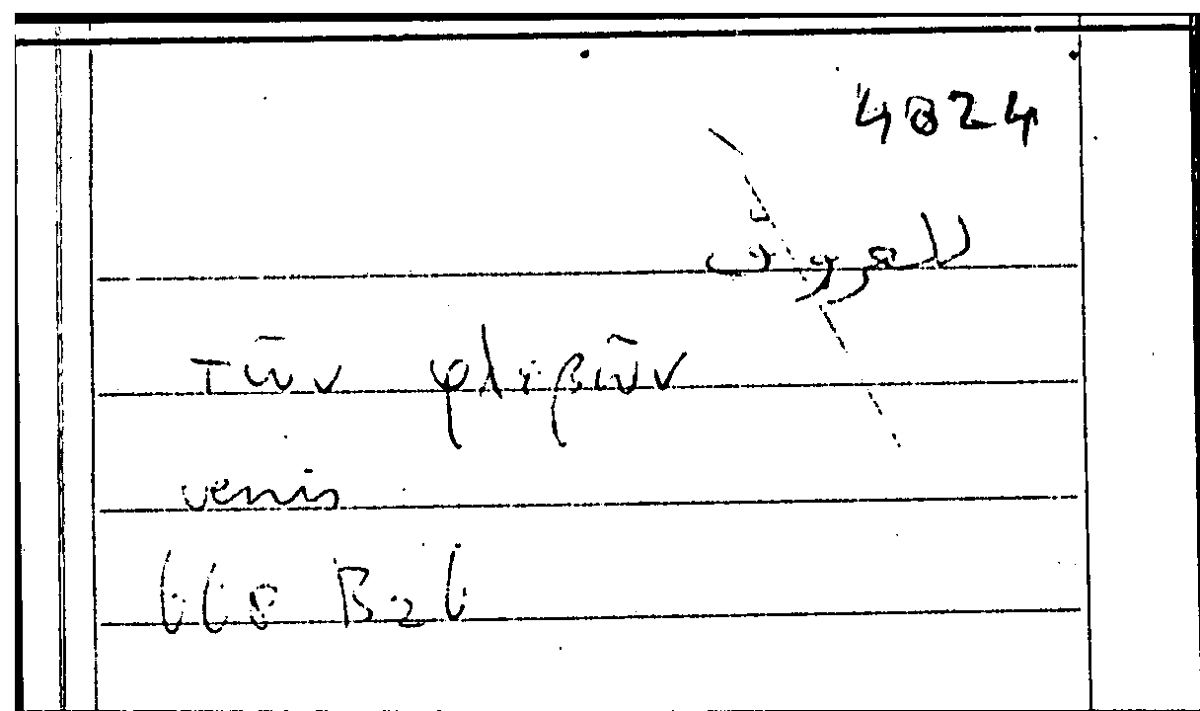 4024
للعروق
τῶν φλεβῶν
venis
668 B26